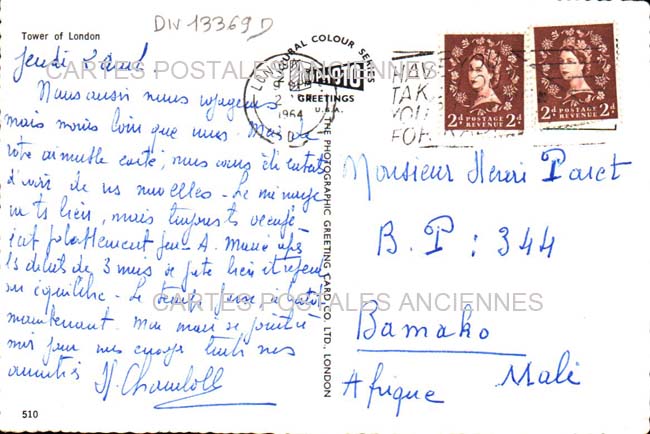 DIV 13369 D
Tower of London
Jeudi 2 avril
Nous aussi nous voyageons
mais moins loin que vous. Merci de
votre aimable carte, nous avons été contents
d'avoir de vos nouvelles - Le ménage
va très bien, mais toujours occupé
A.
début de 3 mois se porte bien et reprend
son équilibre - Le temps
maintenant. Mon mari se joint à
moi pour vous envoyer toutes nos
amitiés
510
NATURAL COLOUR SERIES
GREETINGS
U.S.A.
THE PHOTOGRAPHIC GREETING CARD CO. LTD., LONDON
LONDON
1964
TAK
YOU
FOR
2d POSTAGE REVENUE 2d
2d POSTAGE REVENUE 2d
Monsieur Henri Paret
B. P : 344
Bamako
Mali
Afrique
CARTES POSTALES ANCIENNES
CARTES POSTALES ANCIENNES